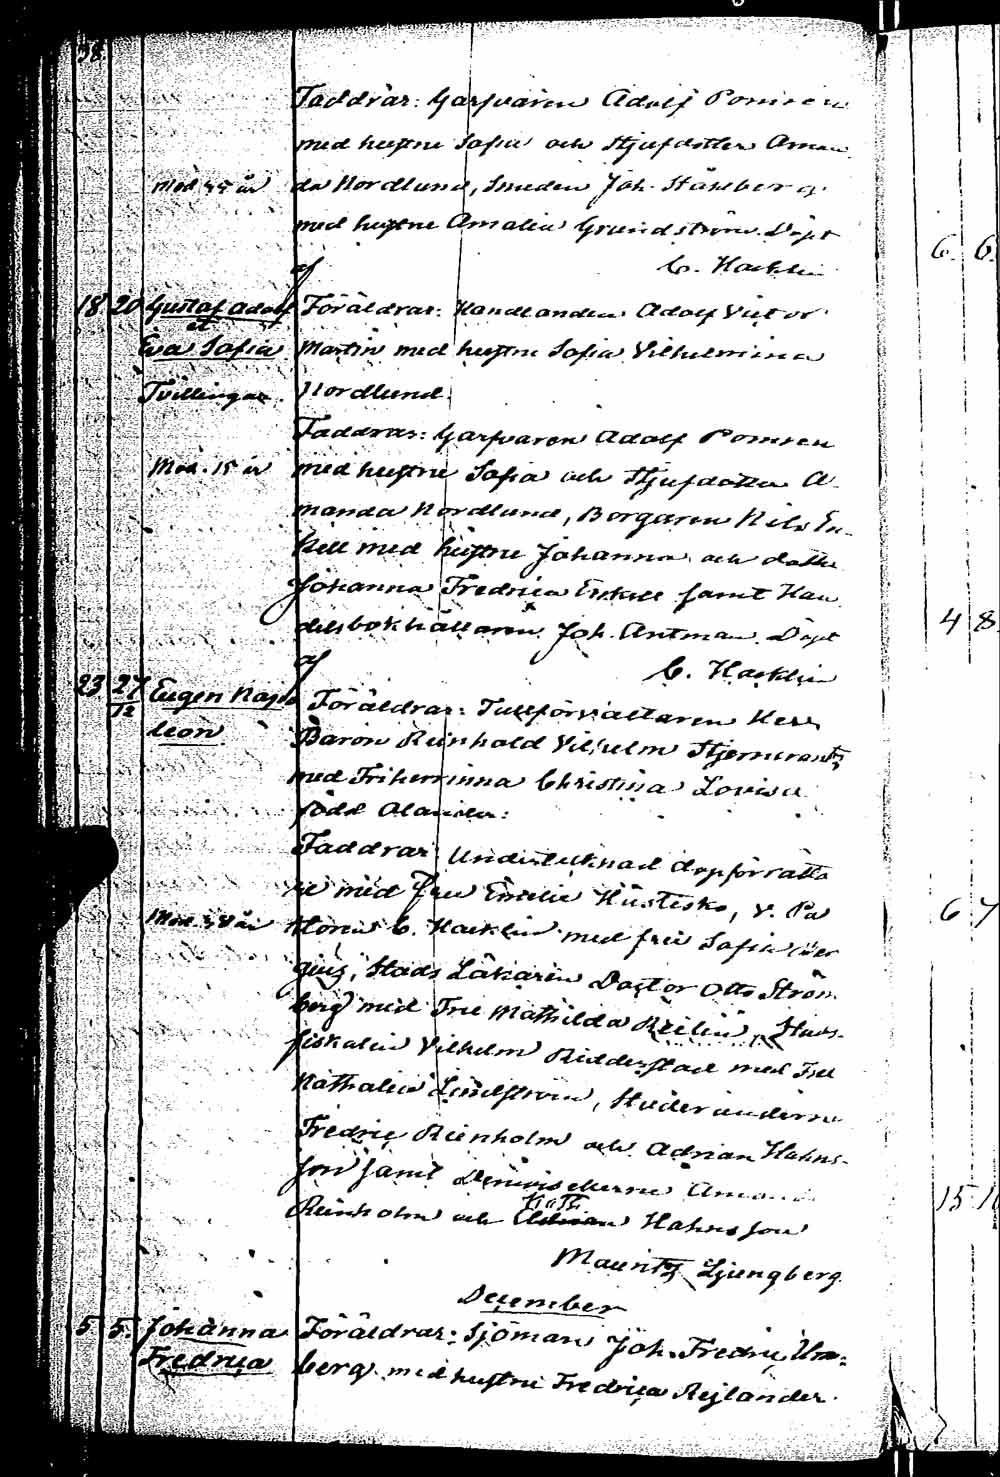 38.
Faddrar: Garfvaren Adolf Ponsen
med hustru Sofia och Stjufdotter Aman
Mod. år da Nordlund, Smeden Joh. Ståhlberg
med hustru Amalia Grundström. Döpt
af C. Hacklin
18 20 Gustaf Adolf Föräldrar: Handlanden Adolf Victor
et
Eva Sofia Martin med hustru Sofia Vilhelmina
Tvillingar. Nordlund.
Faddrar: Garfvaren Adolf Ponsen
Mod. år med hustru Sofia och Stjufdotter A-
manda Nordlund, Borgaren Nils En-
kell med hustru Johanna och dotter
Johanna Fredrica Enkell samt Han
delsbokhållaren Joh. Antman. Döpt
af C. Hacklin
23 27/12 Eugen Napo Föräldrar: Tullförvaltaren Herr
leon Baron Reinhold Vilhelm Stjerncrantz
med Friherrinna Christina Lovisa
född Olander:
Faddrar: Undertecknad dopförrätta
re med fru Emilie, V. Pa
Mod. år storn C. Hacklin med fru Sofia
Stads Läkaren Doctor Otto Ström
berg med Fru Mathilda, Stads-
fiskalen Vilhelm Ridderstad med Fru
Nathalia Lindström, Studerandene
Fredric Reinholm och Adrian Hahns-
son samt Demoisellerna Amanda
Reinholm och Hahnsson
Mauritz Ljungberg
December
5 5 Johanna Föräldrar: Sjöman Joh. Fredric
Fredrica berg med hustru Fredrica Rejlander.
6. 6.
4 8
6 7
15